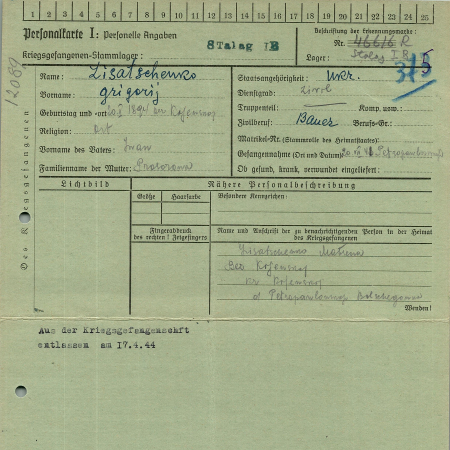 1 2 3 4 5 6 7 8 9 10 11 12 13 14 15 16 17 18 19 20 21 22 23 24 25
Personalkarte I: Personelle Angaben
Beschriftung der Erkennungsmarke:
Kriegsgefangenen-Stammlager: Stalag IB
Nr. 46616 R
Lager: Stalag I B
12089
Des Kriegsgefangenen
Name: Lisatschenko
Staatsangehörigkeit: Ukr.
Vorname: Grigorij
Dienstgrad: Zivil
Geburtstag und -ort
Truppenteil: Komp. usw.:
Religion: ort
Zivilberuf: Bauer Berufs-Gr.:
Vorname des Vaters: Iwan
Matrikel-Nr. (Stammrolle des Heimatstaates):
Gefangennahme (Ort und Datum):
Familienname der Mutter:
Ob gesund, krank, verwundet eingeliefert:
Lichtbild
Nähere Personalbeschreibung
Größe Haarfarbe Besondere Kennzeichen:
Fingerabdruck
des rechten! Zeigefingers
Name und Anschrift der zu benachrichtigenden Person in der Heimat
des Kriegsgefangenen
Lisatschenko Matrena
Wenden!
Aus der Kriegsgefangenschft
entlassen am 17.4.44